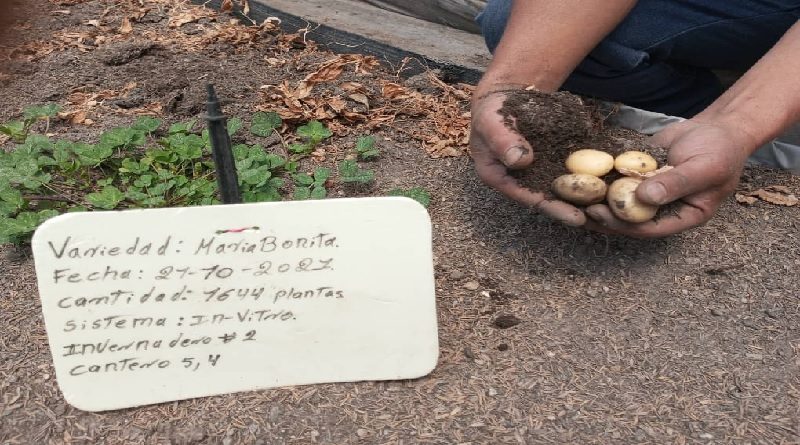 Variedad: Maria Bonita.
Fecha: 21-10-2021.
cantidad: 1644 plantas
sistema: In-Vitro.
Invernadero # 2
Cantero 5, 4